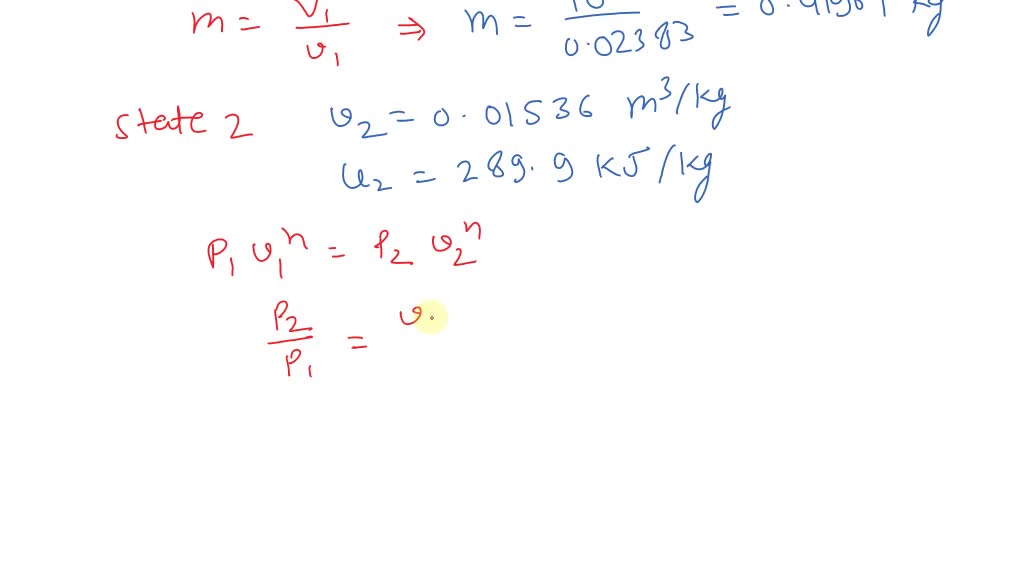 m = V₁/υ₁ ⇒ m = 10/0.02383 = 0.41961 kg
State 2 υ₂ = 0.01536 m³/kg
u₂ = 289.9 KJ/kg
P₁ υ₁ⁿ = P₂ υ₂ⁿ
P₂/P₁ = υ.